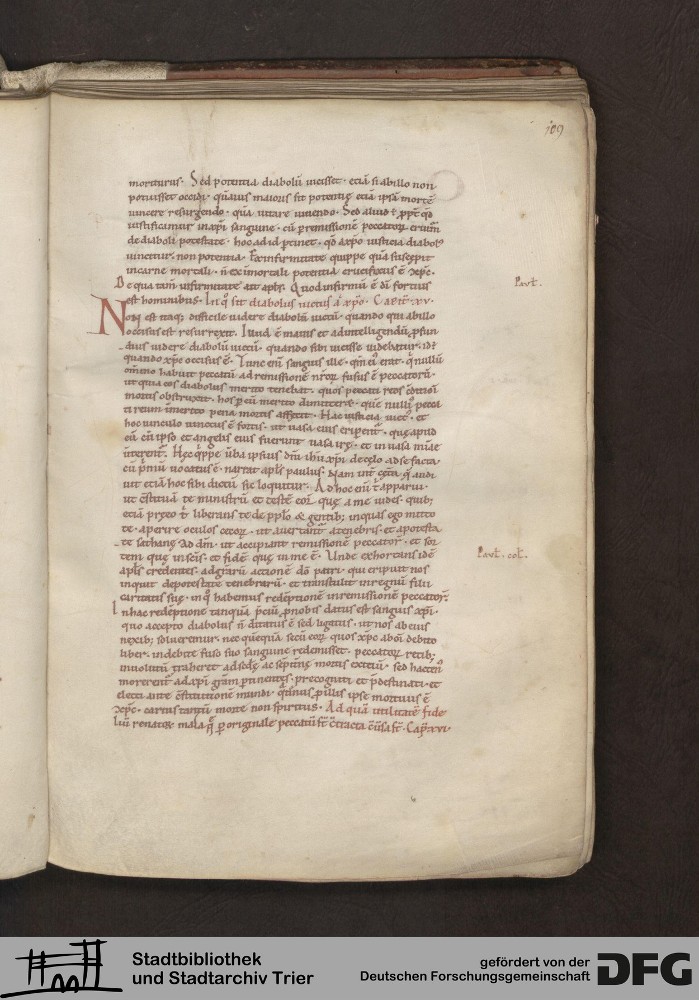 109
moriturus. Sed potentia diabolũ uicisset. etiã si ab illo non
potuisset occidi. quãuis maioris sit potentię etiã ipsã mortẽ
uincere resurgendo. quã uitare uiuendo. Sed aliud ẽ ppt qđ
iustificamur in xp̃i sanguine. cũ p remissionẽ peccatorꝝ eruim̃
de diaboli potestate. hoc ad id ptinet. qđ a xp̃o iusticia diabolꝰ
uincitur. non potentia. Ex infirmitate quippe quã suscepit
in carne mortali. ñ ex immortali potentia crucifixus ẽ xp̃c.
De qua tam̃ infirmitate ait apl̃s. Quod infirmũ ẽ di fortius
Paul.
est hominibus. In q° sit diabolus uictus a xp̃o. Cap. XV.
Non est itaq; difficile uidere diabolũ uictũ. quando qui ab illo
occisus est resurrexit. Illud ẽ maius et ad intelligendũ pfun
dius uidere diabolũ uictũ. quando sibi uicisse uidebatur. id ẽ
quando xp̃c occisus ẽ. Tunc eni sanguis ille. qm̃ eiꝰ erat. q nullũ
om̃ino habuit peccatũ ad remissionẽ nr̃orꝝ fusus ẽ peccatorũ.
ut quia eos diabolus merito tenebat. quos peccati reos
mortis obstruxit. hos p eũ merito dimitteret. quẽ nulliꝰ pecca
ti reum ĩmerito pena mortis affecit. Hac iusticia uict. et
hoc uinculo uinctus ẽ fortis. ut uasa eius eriperent. quę apud
eũ cũ ipso et angelis eius fuerant uasa irę. et in uasa mĩae
uerterent. Hęc q̃ppe uba ipsius dñi ihũ xp̃i de cęlo ad se facta
cũ pmũ uocatus ẽ. narrat apl̃s paulus. Nam int cęta q̃ audi
uit etiã hoc sibi dictũ sic loquitur. Ad hoc eni t apparui.
ut cstituã te ministrũ et testẽ eorꝝ quę a me uides. quib;
etiã pręeo t liberans te de pplo & gentib; in quas ego mitto
te. aperire oculos cecorꝝ. ut auertant a tenebris. et a potesta
te sathanę ad dm̃. ut accipiant remissionẽ peccatorꝝ. et sor
tem quę in scis. et fidẽ quę in me ẽ. Unde exhortans idẽ
Paul. col.
apl̃s credentes. ad grarũ actionẽ dõ patri. qui eripuit nos
inquit de potestate tenebrarũ. et transtulit in regnũ filii
caritatis suę. in q° habemus redẽptionẽ in remissionẽ peccatorꝝ.
In hac redẽptione tanquã pciũ p nobis datus est sanguis xp̃i.
quo accepto diabolus ñ ditatus ẽ sed ligatus. ut nos ab eius
nexib; solueremur. nec quẽquã secũ eorꝝ quos xp̃c ab oĩ debito
liber. indebite fuso suo sanguine redemisset. peccatorꝝ retib;
inuolutũ traheret ad scdę ac sẽpitnę mortis exitiũ. sed hactenꝰ
morerent ad xp̃i grãm ptinentes. precogniti et pdestinati. et
electi ante cstitutionẽ mundi. q̃tinus p illis ipse mortuus ẽ
xp̃c. carnis tantũ morte non spiritus. Ad quã utilitatẽ fide
liũ renatis. mala q̃ p originale peccatũ st ctracta ẽ. Cap. XVI.
Stadtbibliothek
und Stadtarchiv Trier
gefördert von der
Deutschen Forschungsgemeinschaft
DFG